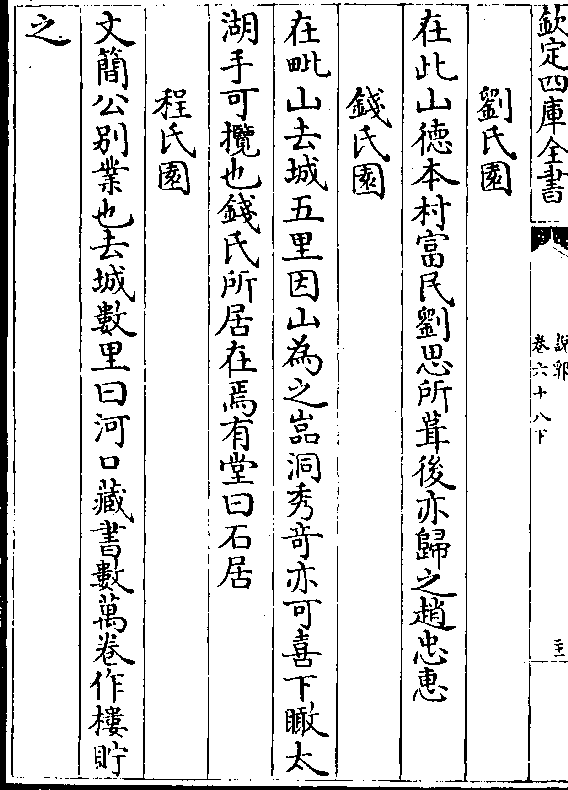 欽定四庫全書
說郛
卷六十八下
劉氏園
在此山德本村富民劉思所葺後亦歸之趙忠惠
錢氏園
在毗山去城五里因山為之嵓洞秀竒亦可喜下瞰太
湖手可攬也錢氏所居在焉有堂曰石居
程氏園
文簡公别業也去城數里曰河口藏書數萬卷作樓貯
之